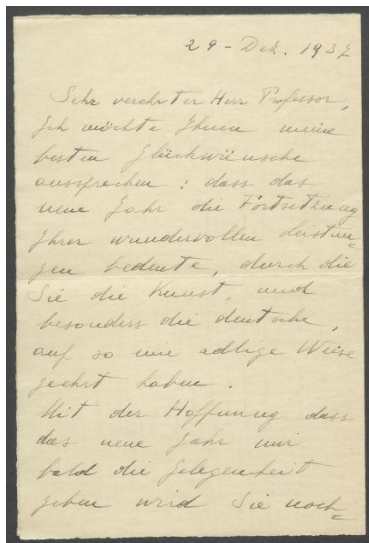 29 - Dek. 1937
Sehr verehrter Herr Professor,
Ich möchte Ihnen meine
besten Glückwünsche
aussprechen : dass das
neue Jahr die Fortsetzung
Ihrer wundervollen Leistun-
gen bedeute, durch die
Sie die Kunst, und
besonders die deutsche,
auf so eine adlige Wiese
geehrt haben.
Mit der Hoffnung dass
das neue Jahr mir
bald die Gelegenheit
geben wird Sie noch-